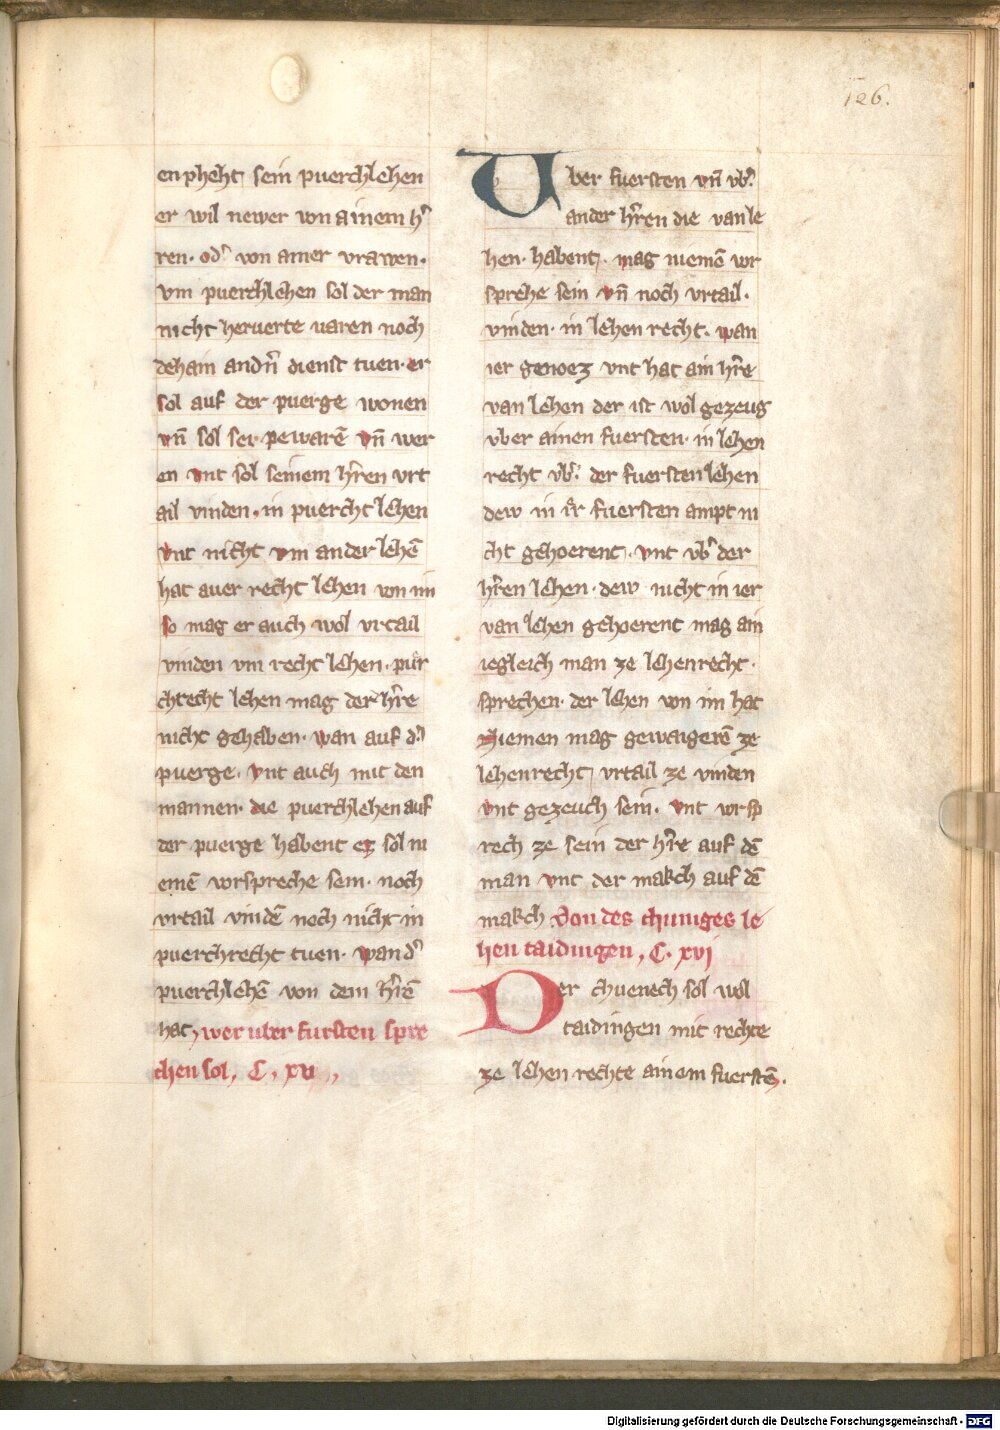 126.
enpheht sein puerchlehen
er wil newer von ainem h̾
ren. od̾ von ainer vrawen.
vm puerchlehen sol der man
nicht heruerte uaren noch
dehain andn̄ dienst tuen. er
sol auf der puerge wonen
vn̄ sol sei pewarē vn̄ wer
en vnt sol seinem hr̄en vrt
ail vinden. in puercht lehen
vnt nicht vm ander lehē
hat auer recht lehen von im
so mag er auch wol vrtail
vinden vm recht lehen. puͤr
chrecht lehen mag der hr̄re
nicht gehaben. wan auf d̾
puerge. vnt auch mit den
mannen. die puerchlehen auf
der puerge habent ez sol ni
emē vorspreche sein. noch
vrtail vindē noch nicht in
puerchrecht tuen. wand̾
puerchlehē von dem hr̄rē
hat, wer uber fursten spre
chen sol, C. xv,,
Vber fuersten vn̄ vb̾
ander hr̄ren die vanle
hen. habent. mag niemē vor
spreche sein vn̄ noch vrtail.
vinden. in lehen recht. wan
ier genoez vnt hat ain hr̄re
van lehen der ist wol gezeug
vber ainen fuersten. in lehen
recht vb̾ der fuersten lehen
dew in ir fuersten ampt ni
cht gehoerent. vnt vb̾ der
hr̄ren lehen. dew nicht in ier
van lehen gehoerent mag ain
iegleich man ze lehenrecht.
sprechen. der lehen von im hat
Niemen mag gewaigerē ze
lehenrecht vrtail ze vinden
vnt gezeuch sein. vnt vorsp
rech ze sein der hr̄re auf dē
man vnt der makch auf dē
makch Von des chuniges le
hen taidingen, C. xvj
Der chuenech sol wol
taidingen mit rechte
ze lehen rechte ainem fuerstē.
Digitalisierung gefördert durch die Deutsche Forschungsgemeinschaft - DFG